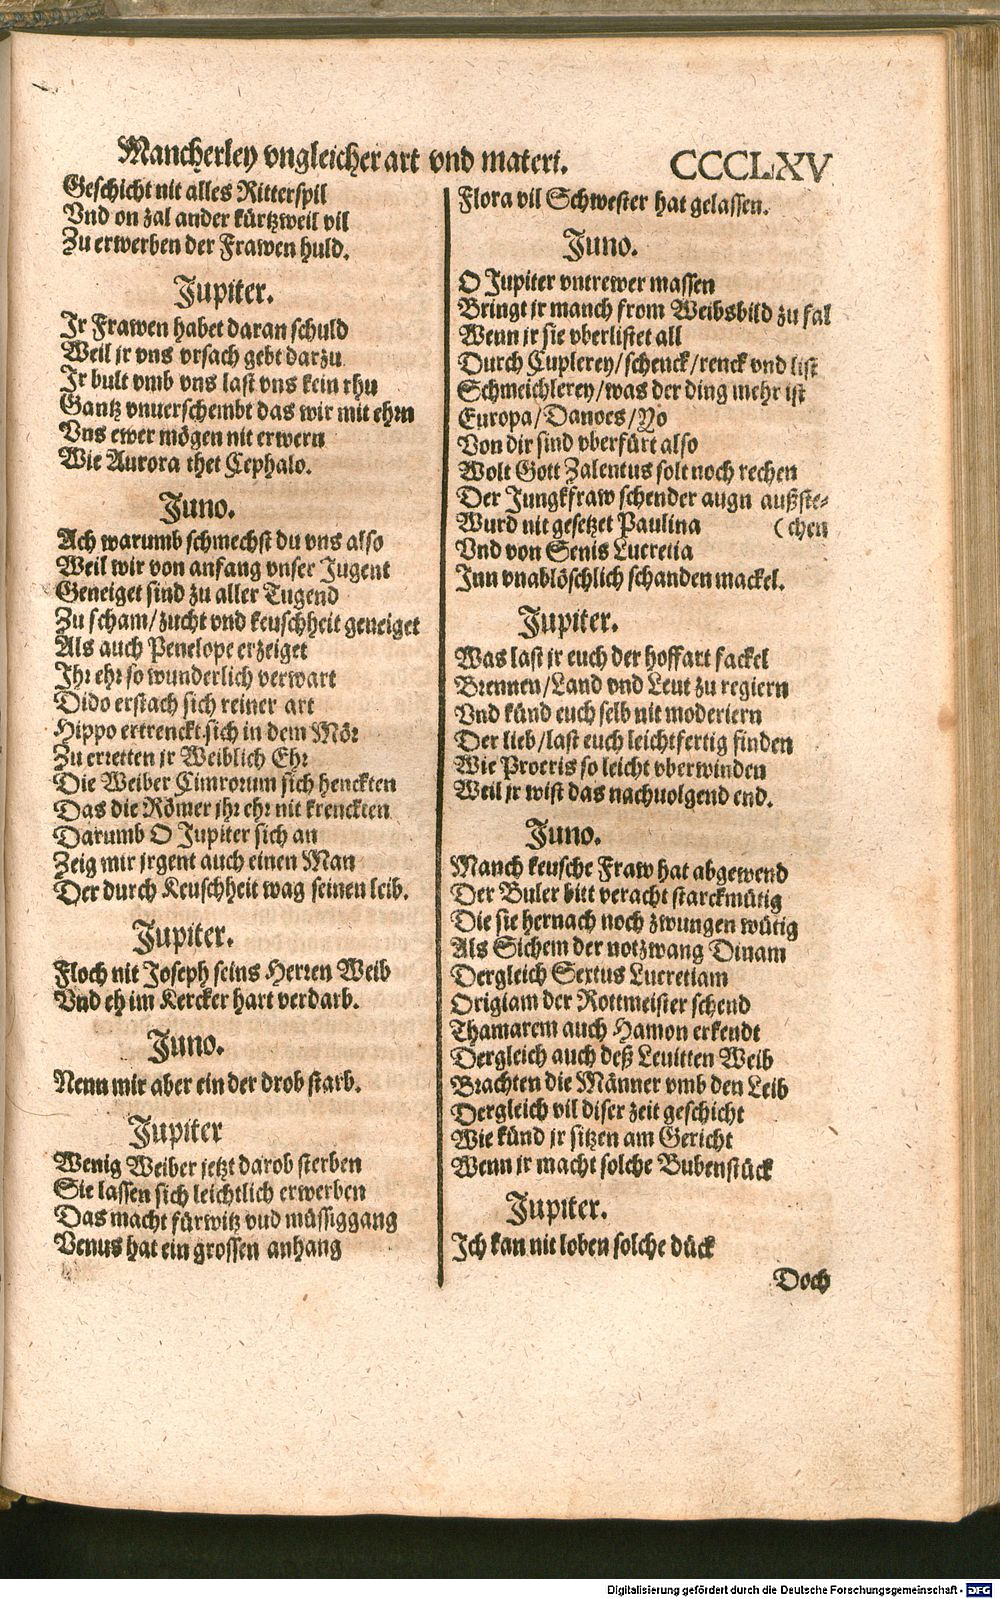 Mancherley vngleicher art vnd materi. CCCLXV
Geschicht nit alles Ritterspil
Vnd on zal ander kürtzweil vil
Zu erwerben der Frawen huld.
Jupiter.
Jr Frawen habet daran schuld
Weil jr vns vrsach gebt darzu
Jr bult vmb vns last vns kein rhu
Gantz vnuerschembt das wir mit ehrn
Vns ewer mögen nit erwern
Wie Aurora thet Cephalo.
Juno.
Ach warumb schmechst du vns also
Weil wir von anfang vnser Jugent
Geneiget sind zu aller Tugend
Zu scham/zucht vnd keuschheit geneiget
Als auch Penelope erzeiget
Jhr ehr so wunderlich verwart
Dido erstach sich reiner art
Hippo ertrenckt sich in dem Mör
Zu erretten jr Weiblich Ehr
Die Weiber Cimrorum sich henckten
Das die Römer jhr ehr nit krenckten
Darumb O Jupiter sich an
Zeig mir jrgent auch einen Man
Der durch Keuschheit wag seinen leib.
Jupiter.
Floch nit Joseph seins Herren Weib
Vnd eh im Kercker hart verdarb.
Juno.
Nenn mir aber ein der drob starb.
Jupiter
Wenig Weiber jetzt darob sterben
Sie lassen sich leichtlich erwerben
Das macht fürwitz vnd müssiggang
Venus hat ein grossen anhang
Flora vil Schwester hat gelassen.
Juno.
O Jupiter vntrewer massen
Bringt jr manch from Weibsbild zu fal
Wenn jr sie vberlistet all
Durch Cuplerey/schenck/renck vnd list
Schmeichlerey/was der ding mehr ist
Europa/Danoes/Yo
Von dir sind vberfürt also
Wolt Gott Zalentus solt noch rechen
Der Jungkfraw schender augn außste-
Wurd nit gesetzet Paulina (chen
Vnd von Senis Lucretia
Jnn vnablöschlich schanden mackel.
Jupiter.
Was last jr euch der hoffart fackel
Brennen/Land vnd Leut zu regiern
Vnd künd euch selb nit moderiern
Der lieb/last euch leichtfertig finden
Wie Procris so leicht vberwinden
Weil jr wist das nachuolgend end.
Juno.
Manch keusche Fraw hat abgewend
Der Buler bitt veracht starckmütig
Die sie hernach noch zwungen wütig
Als Sichem der notzwang Dinam
Dergleich Sextus Lucretiam
Origiam der Rottmeister schend
Thamarem auch Hamon erkendt
Dergleich auch deß Leuitten Weib
Brachten die Männer vmb den Leib
Dergleich vil diser zeit geschicht
Wie künd jr sitzen am Gericht
Wenn jr macht solche Bubenstück
Jupiter.
Jch kan nit loben solche dück
Doch
Digitalisierung gefördert durch die Deutsche Forschungsgemeinschaft - DFG